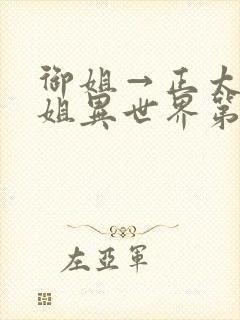 御姐→正太
姐異世界第
左亞軍